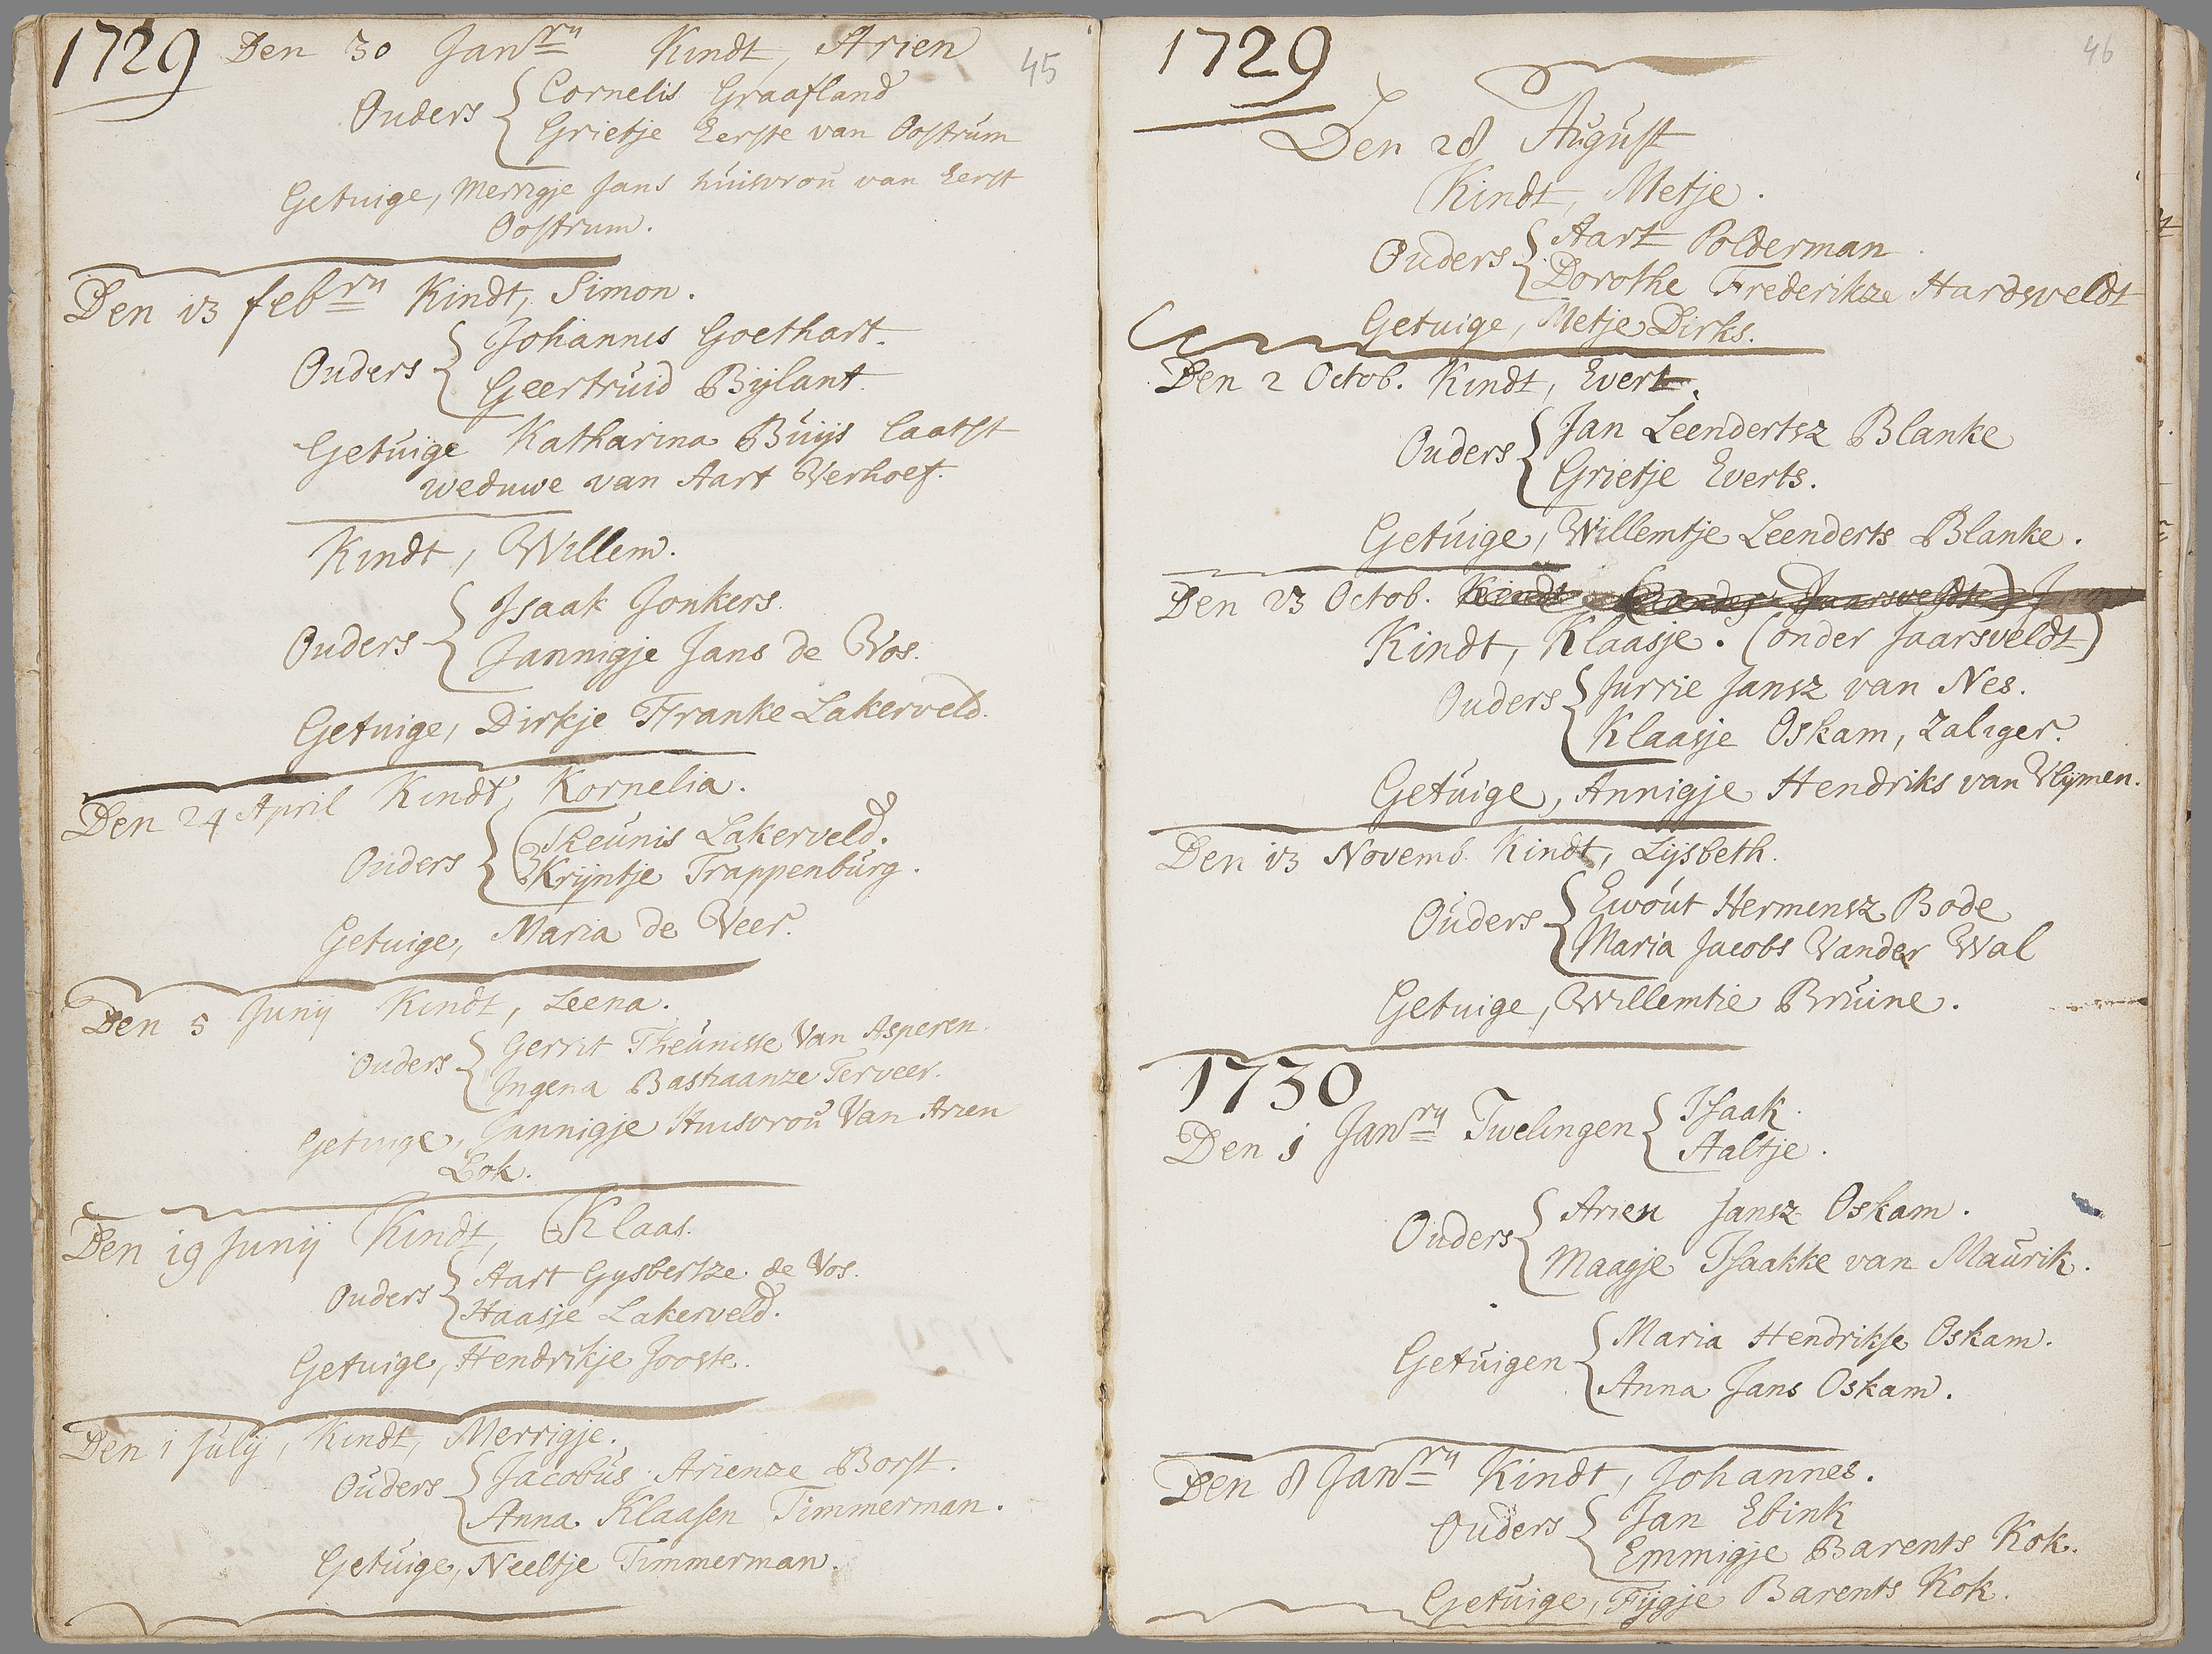 1729 Den 30 Janry Kindt, Arien 45
Ouders Cornelis Graafland
Grietje Eerste van Oostrum
Getuige, Merrigje Jans huisvrou van Eerst
Oostrum.
Den 13 febry Kindt, Simon.
Ouders Johannis Goethart.
Geertruid Bijlant.
Getuige Katharina Buijs laatst
weduwe van Aart Verhoef.
Kindt, Willem.
Ouders Isaak Jonkers.
Jannigje Jans de Vos.
Getuige, Dirkje Franke Lakerveld.
Den 24 April Kindt, Kornelia.
Ouders Theunis Lakerveld.
Krijntje Trappenburg.
Getuige, Maria de Veer.
Den 5 Junij Kindt, Leena.
Ouders Gerrit Theunisse Van Asperen.
Ingena Bastiaanze Terveer.
Getuige, Jannigje Huisvrou Van Arien
Bok.
Den 19 Junij Kindt, Klaas.
Ouders Aart Gysbertze de Vos.
Haasje Lakerveld.
Getuige, Hendrikje Jooste.
Den 1 Julij, Kindt, Merrigje.
Ouders Jacobus Arienze Borst.
Anna Klaasen Timmerman.
Getuige, Neeltje Timmerman.
1729 46
Den 28 August
Kindt, Metje.
Ouders Aart Polderman
Dorothe Frederikze Hardsveldt
Getuige, Metje Dirks.
Den 2 Octob. Kindt, Evert.
Ouders Jan Leendertsz Blanke
Grietje Everts.
Getuige, Willemtje Leenderts Blanke.
Den 23 Octob. Kindt (onder Jaarsveldt)
Kindt, Klaasje. (onder Jaarsveldt)
Ouders Jurrie Jansz van Nes.
Klaasje Oskam, zaliger.
Getuige, Annigje Hendriks van Vlijmen.
Den 13 Novemb. Kindt, Lijsbeth.
Ouders Ewout Hermensz Bode
Maria Jacobs Vander Wal
Getuige, Willemtie Bruine.
1730
Den 1 Janry Twelingen Isaak.
Aaltje.
Ouders Arien Jansz Oskam.
Maagje Isaakke van Maurik.
Getuigen Maria Hendrikse Oskam.
Anna Jans Oskam.
Den 8 Janry Kindt, Johannes.
Ouders Jan Ebink
Emmigje Barents Kok.
Getuige, Fijgje Barents Kok.